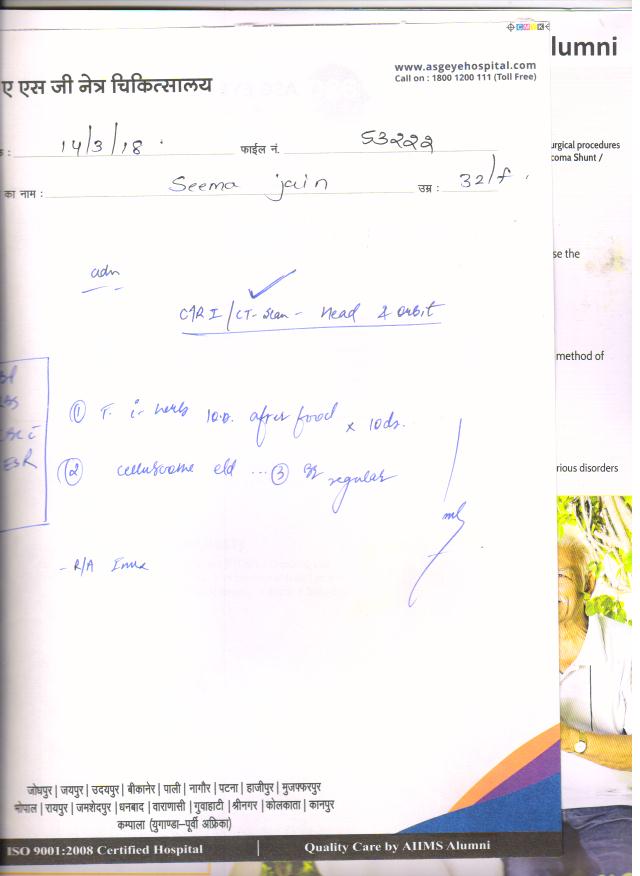 lumni
www.asgeyehospital.com
ए एस जी नेत्र चिकित्सालय
Call on : 1800 1200 111 (Toll Free)
urgical procedures
coma Shunt /
14/3/18 फाईल नं. 53222
का नाम : Seema jain उम्र : 32/f
se the
adv
/ CT-Scan - Head & orbit
method of
ESR
① T. i- herbs after food x 10ds.
② eld ... ③ regular
rious disorders
- R/A
जोधपुर | जयपुर | उदयपुर | बीकानेर | पाली | नागौर | पटना | हाजीपुर | मुजफ्फरपुर
भोपाल | रायपुर | जमशेदपुर | धनबाद | वाराणसी | गुवाहाटी | श्रीनगर | कोलकाता | कानपुर
कम्पाला (युगाण्डा–पूर्वी अफ्रिका)
ISO 9001:2008 Certified Hospital | Quality Care by AIIMS Alumni